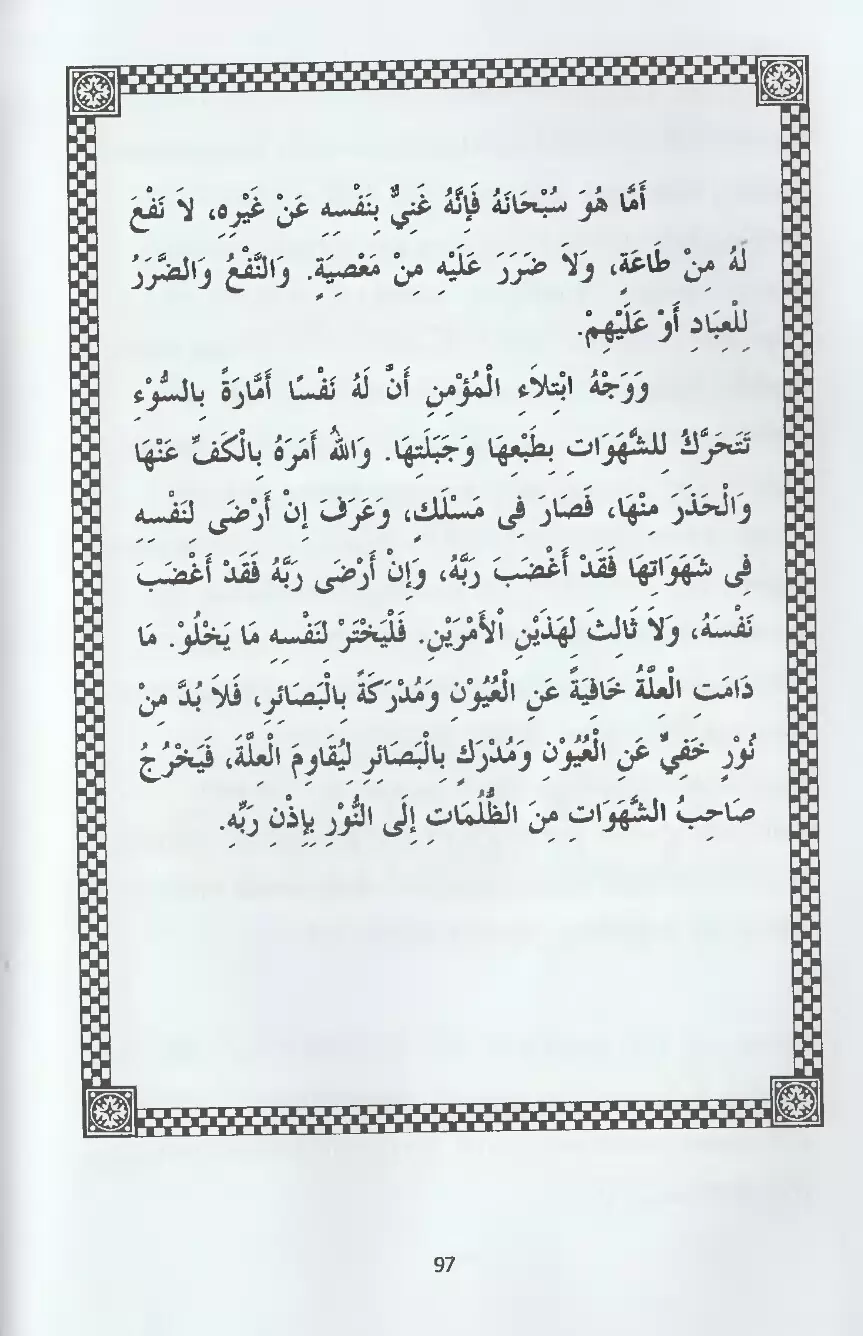 أَمَّا هُوَ سُبْحَانَهُ فَإِنَّهُ غَنِيٌّ بِنَفْسِهِ عَنْ غَيْرِهِ، لاَ نَفْعَ
لَهُ مِنْ طَاعَةٍ، وَلاَ ضَرَرَ عَلَيْهِ مِنْ مَعْصِيَةٍ. وَالنَّفْعُ وَالضَّرَرُ
لِلْعِبَادِ أَوْ عَلَيْهِمْ.
وَوَجْهُ ابْتِلاَءِ الْمُؤْمِنِ أَنَّ لَهُ نَفْسًا أَمَّارَةً بِالسُّوْءِ
تَتَحَرَّكُ لِلشَّهَوَاتِ بِطَبْعِهَا وَجِبَلَّتِهَا. وَاللهُ أَمَرَهُ بِالْكَفِّ عَنْهَا
وَالْحَذَرَ مِنْهَا، فَصَارَ فِى مَسْلَكٍ، وَعَرَفَ إِنْ أَرْضَى لِنَفْسِهِ
فِى شَهَوَاتِهَا فَقَدْ أَغْضَبَ رَبَّهُ، وَإِنْ أَرْضَى رَبَّهُ فَقَدْ أَغْضَبَ
نَفْسَهُ، وَلاَ ثَالِثَ لِهَذَيْنِ الْأَمْرَيْنِ. فَلْيَخْتَرْ لِنَفْسِهِ مَا يَحْلُوْ. مَا
دَامَتِ الْعِلَّةُ خَافِيَةً عَنِ الْعُيُوْنِ وَمُدْرَكَةً بِالْبَصَائِرِ، فَلاَ بُدَّ مِنْ
نُوْرٍ خَفِيٍّ عَنِ الْعُيُوْنِ وَمُدْرَكٍ بِالْبَصَائِرِ لِيُقَاوِمَ الْعِلَّةَ، فَيَخْرُجُ
صَاحِبُ الشَّهَوَاتِ مِنَ الظُّلُمَاتِ إِلَى النُّوْرِ بِإِذْنِ رَبِّهِ.
97